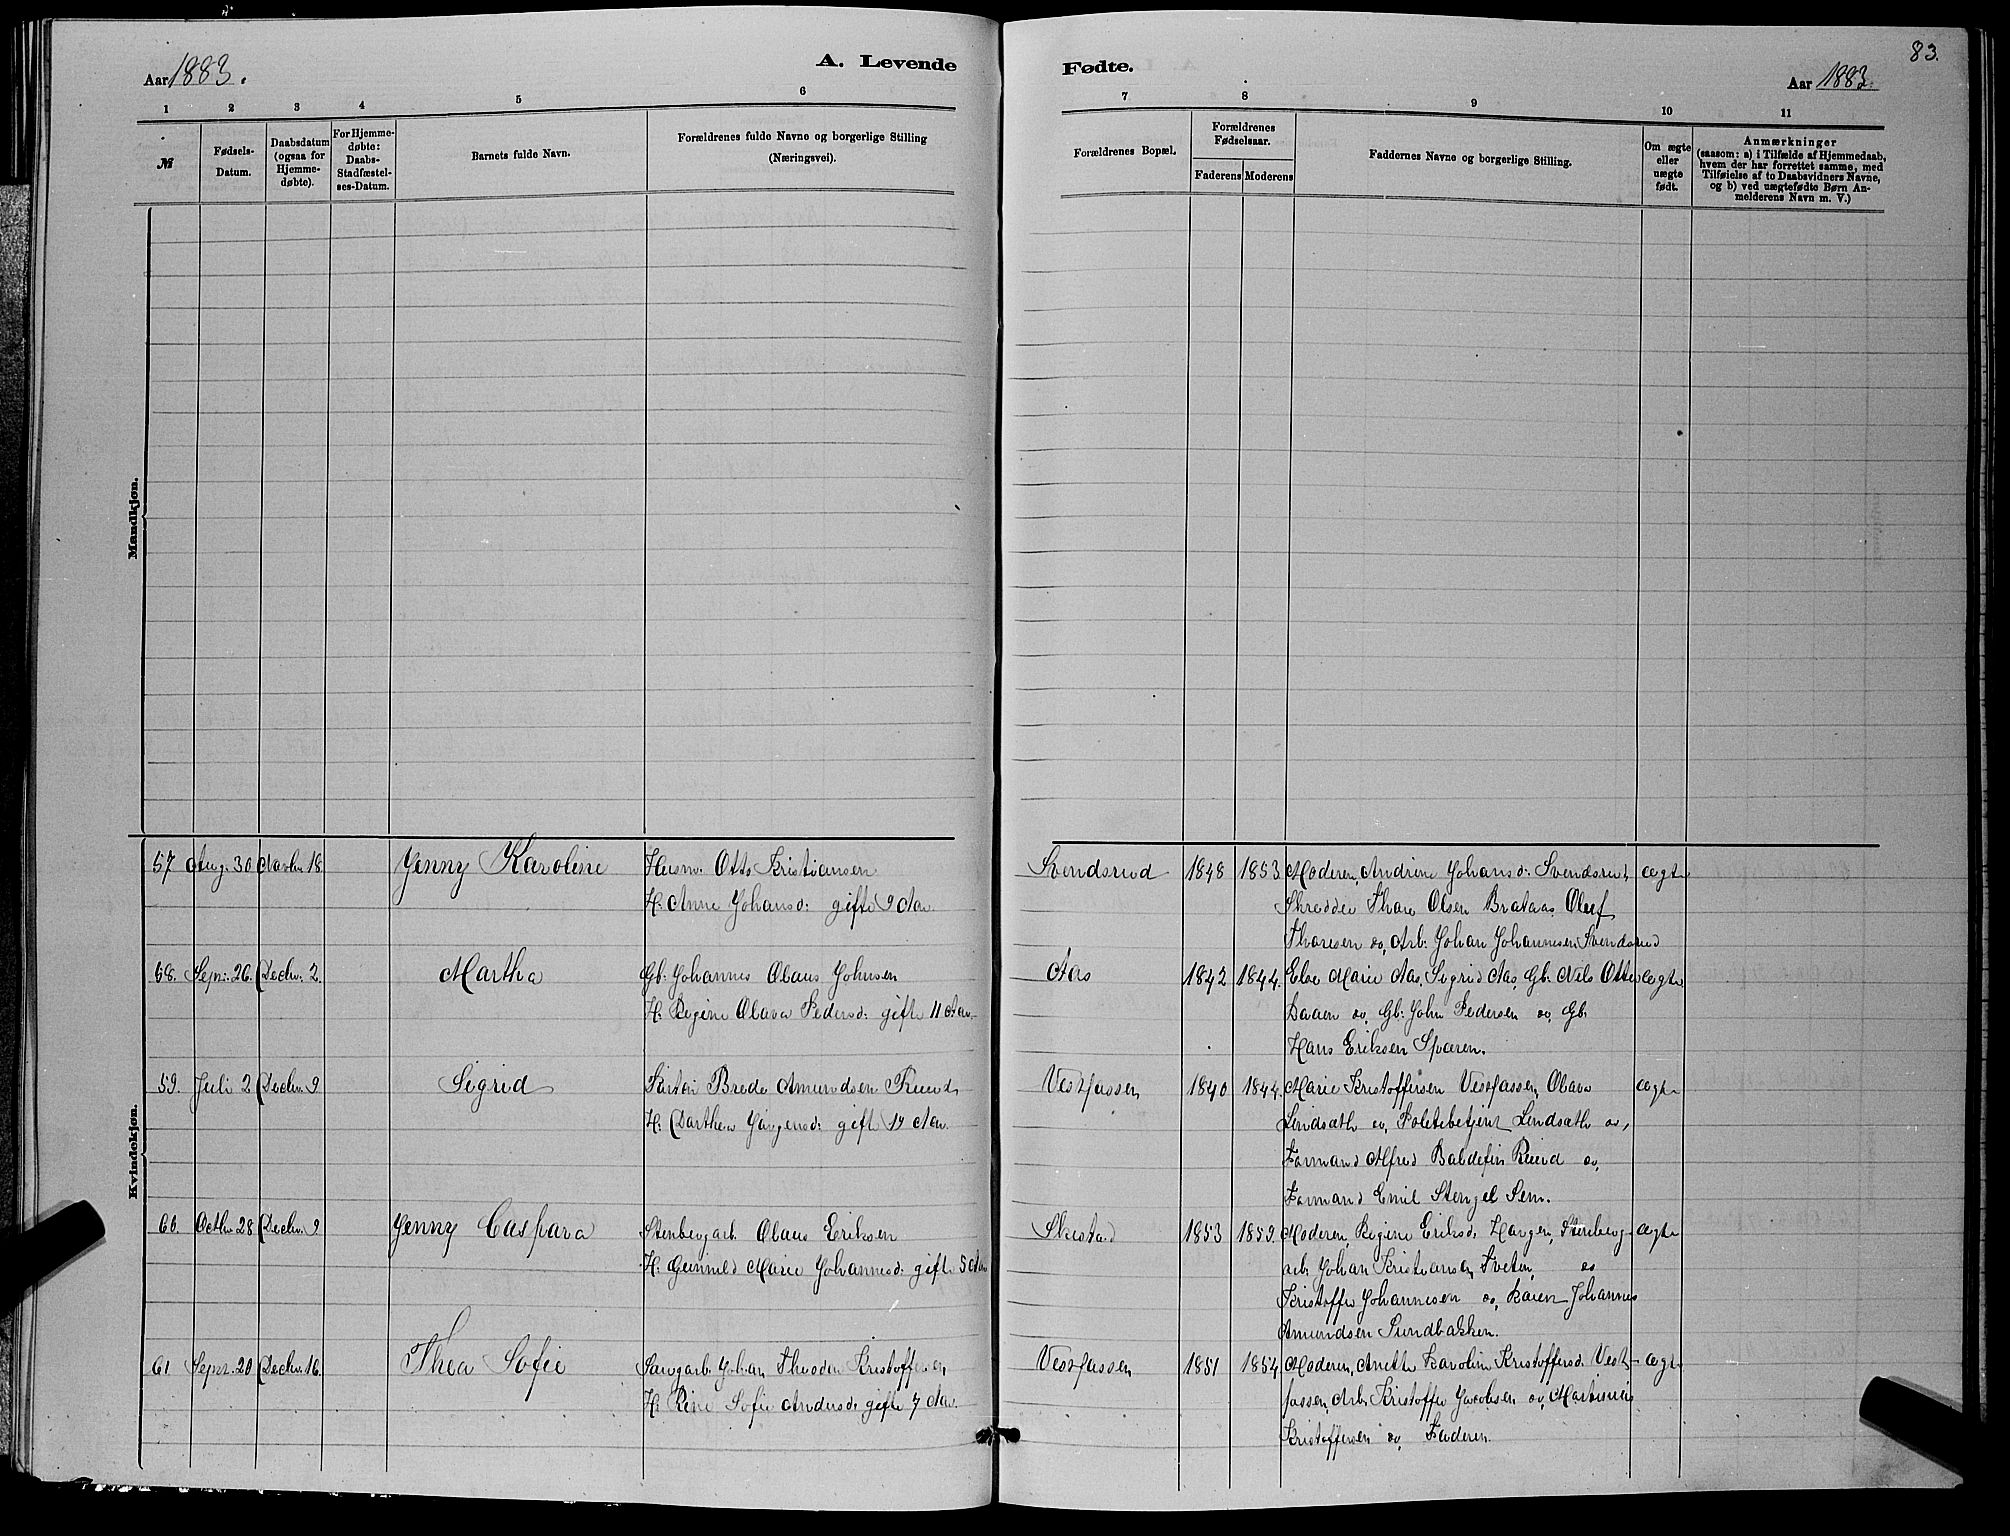 83.
Aar 1883.
A. Levende
Fødte.
Aar 1883.
1 2 3 4 5 6 7 8 9 10 11
№
Fødsels-
Datum.
Daabsdatum
(ogsaa for
Hjemme-
døbte).
For Hjemme-
døbte:
Daabs-
Stadfæstel-
ses-Datum.
Barnets fulde Navn.
Forældrenes fulde Navne og borgerlige Stilling
(Næringsvei).
Forældrenes Bopæl.
Forældrenes
Fødselsaar.
Faderens
Moderens
Faddernes Navne og borgerlige Stilling.
Om ægte
eller
uægte
født.
Anmærkninger
(saasom: a) i Tilfælde af Hjemmedaab,
hvem der har forrettet samme, med
Tilføielse af to Daabsvidners Navne,
og b) ved uægtefødte Børn An-
melderens Navn m. V.)
Mandkjøn.
Kvindekjøn.
57 Aug. 30 Novbr 18 Jenny Karoline Husm. Otto Kristiansen Svendsrud 1848 1853 Moderen, Andrine Johansd: Svendsrud, ægte
H: Anne Johansd: gifte 9 Aar. Skrædder Thore Olsen Brataas Oluf
Thoresen og, Arb: Johan Johannesen Svendsrud
58. Sepr. 26. Decbr. 2. Martha Gb: Johannes Olaus Johnsen Aas 1842 1844. Else Marie Aas, Sigrid Aas, Gb: Nils Otto ægte
H: Regine Olava Pedersd: gifte 11 Aar. og, Gb: John Pedersen og, Gb:
Hans Eriksen
59. Juli 2 Decbr. 9 Sigrid Brede Amundsen Ruud Vestfossen 1840 1844. Marie Kristoffersen Vestfossen, Olava ægte
H: Dorthea Jørgensd: gift 14 Aar. Lindsæth og, Politebetjent Lindsæth og,
Formand Alfred Ruud og,
Formand Emil Stengel Sem.
60. Octbr. 28 Decbr. 9 Jenny Caspara Stenbergarb. Olaus Eriksen Skistad 1853 1859. Moderen, Regine Eriksd: Haugen, Stenberg- ægte
H: Gunnild Marie Johannesd: gifte 5 Aar arb: Johan Kristiansen, Tveten, og
Kristoffer Johannesen og, Karen Johannes
Amundsen Sundbakken.
61. Sepr. 20 Decbr. 16. Thea Sofie Saugarb. Johan Theodor Kristoffersen, Vestfossen 1851 1854. Moderen, Anette Karoline Kristoffersd: Vest- ægte
H: Rine Sofie Andersd: gifte 7 Aar. fossen, Arb: Kristoffer Jacobsen og,
Kristoffersen og, Faderen.